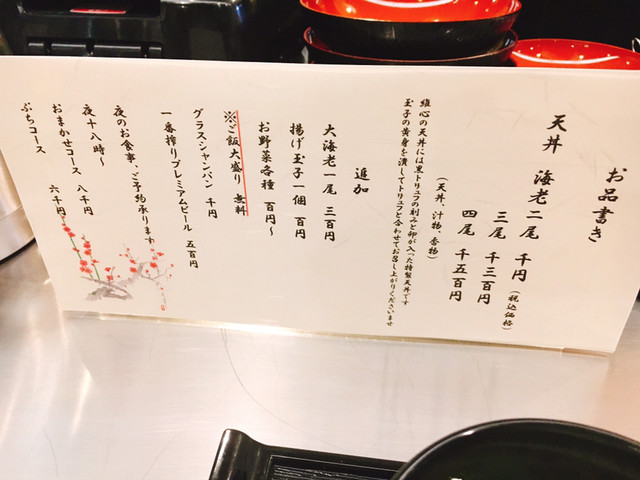 お品書き
天丼 海老二尾 千円(税込価格)
三尾 千三百円
四尾 千五百円
(天丼、汁物、香物)
維心の天丼には黒トリュフの刻みと卵が入った特製天丼です
玉子の黄身を潰してトリュフと合わせてお召し上がりくださいませ
追加
大海老一尾 三百円
揚げ玉子一個 百円
お野菜各種 百円〜
※ご飯大盛り 無料
グラスシャンパン 千円
一番搾りプレミアムビール 五百円
夜のお食事、ご予約承ります
夜十八時〜
おまかせコース 八千円
ぷちコース 六千円